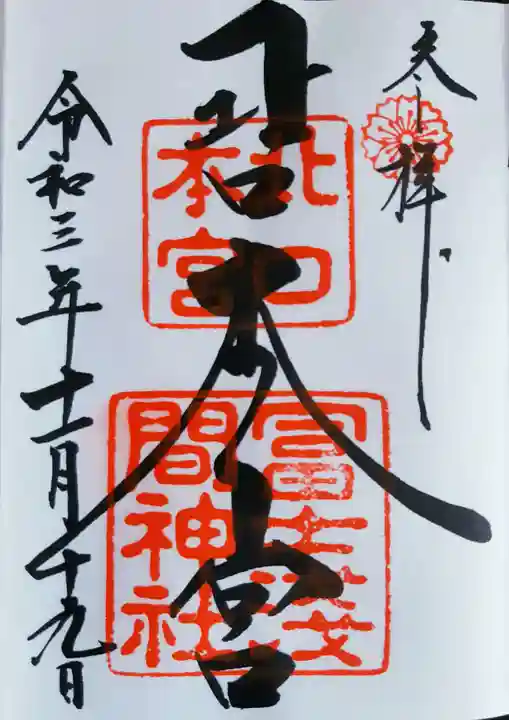 奉拝
北口本宮
令和三年十一月十九日
北口
本宮
冨士淺
間神社